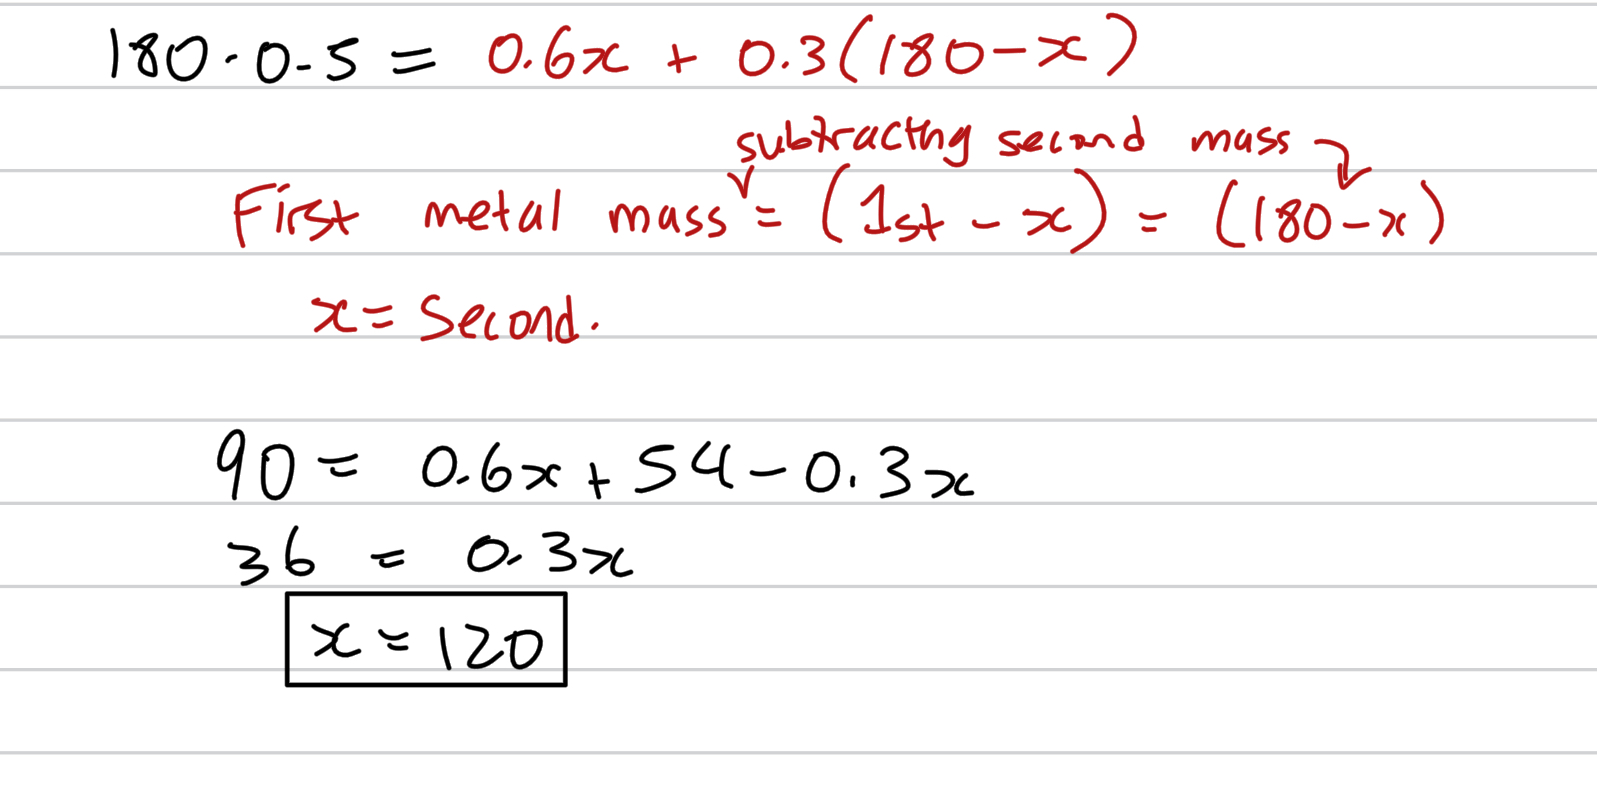 180 · 0.5 = 0.6x + 0.3(180-x)
subtracting second mass
First metal mass = (1st - x) = (180-x)
x = Second.
90 = 0.6x + 54 - 0.3x
36 = 0.3x
x = 120